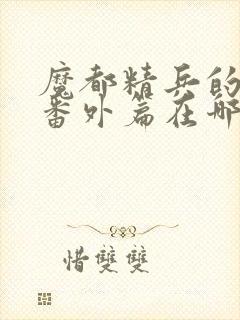 魔都精兵的
番外篇在哪
惜雙雙